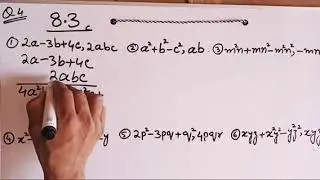 Q4
8.3
① 2a-3b+4c, 2abc ② a²+b²-c², ab ③ m²n+mn²-m²n², -mn
2a-3b+4c
2abc
4a²
④ x² -y ⑤ 2p²-3pq+q², 4pqr ⑥ xyz+x²y²-y²z²,